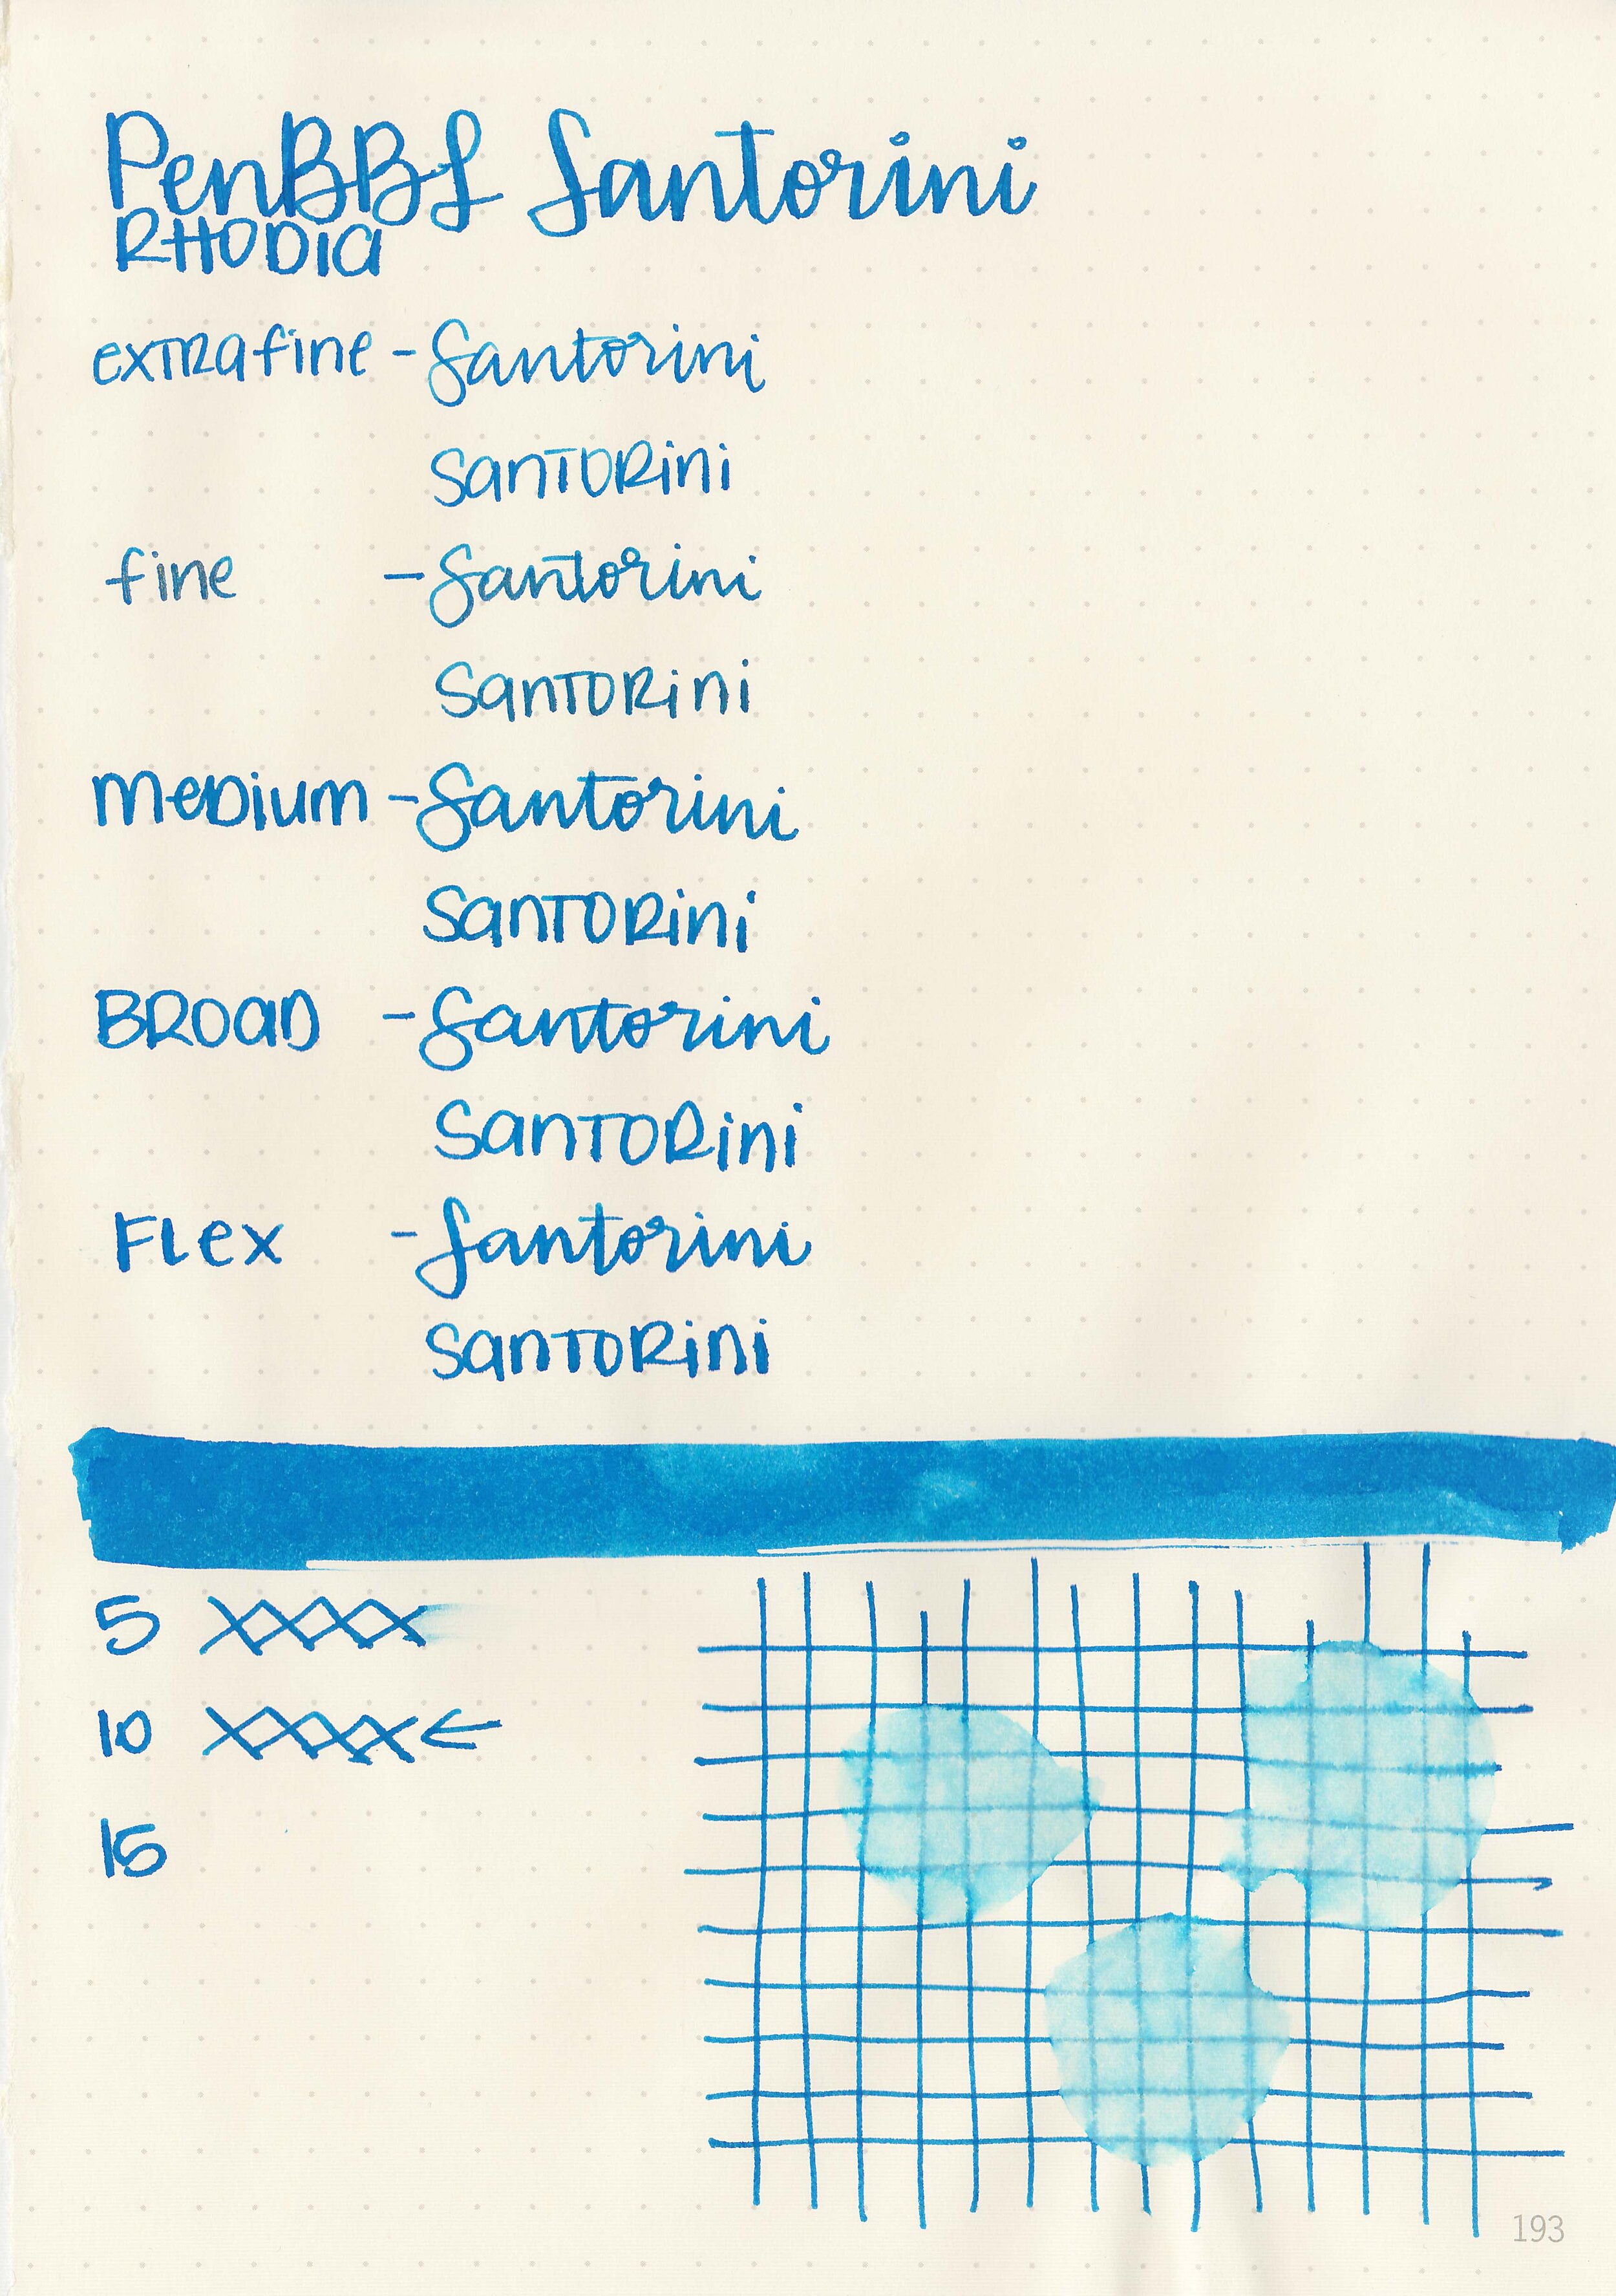 PenBBS Santorini
RHODIA
extrafine - Santorini
Santorini
fine - Santorini
Santorini
Medium - Santorini
Santorini
BROAD - Santorini
Santorini
Flex - Santorini
Santorini
5 XXXX
10 XXXX ←
15
193